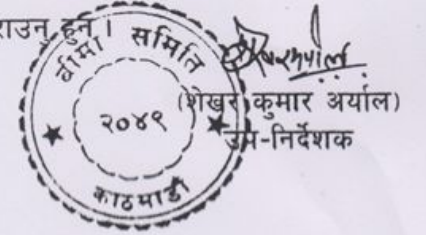 राउनु हुन ।
बीमा समिति
२०४९
काठमाडौं
(शेखर कुमार अर्याल)
उप-निर्देशक